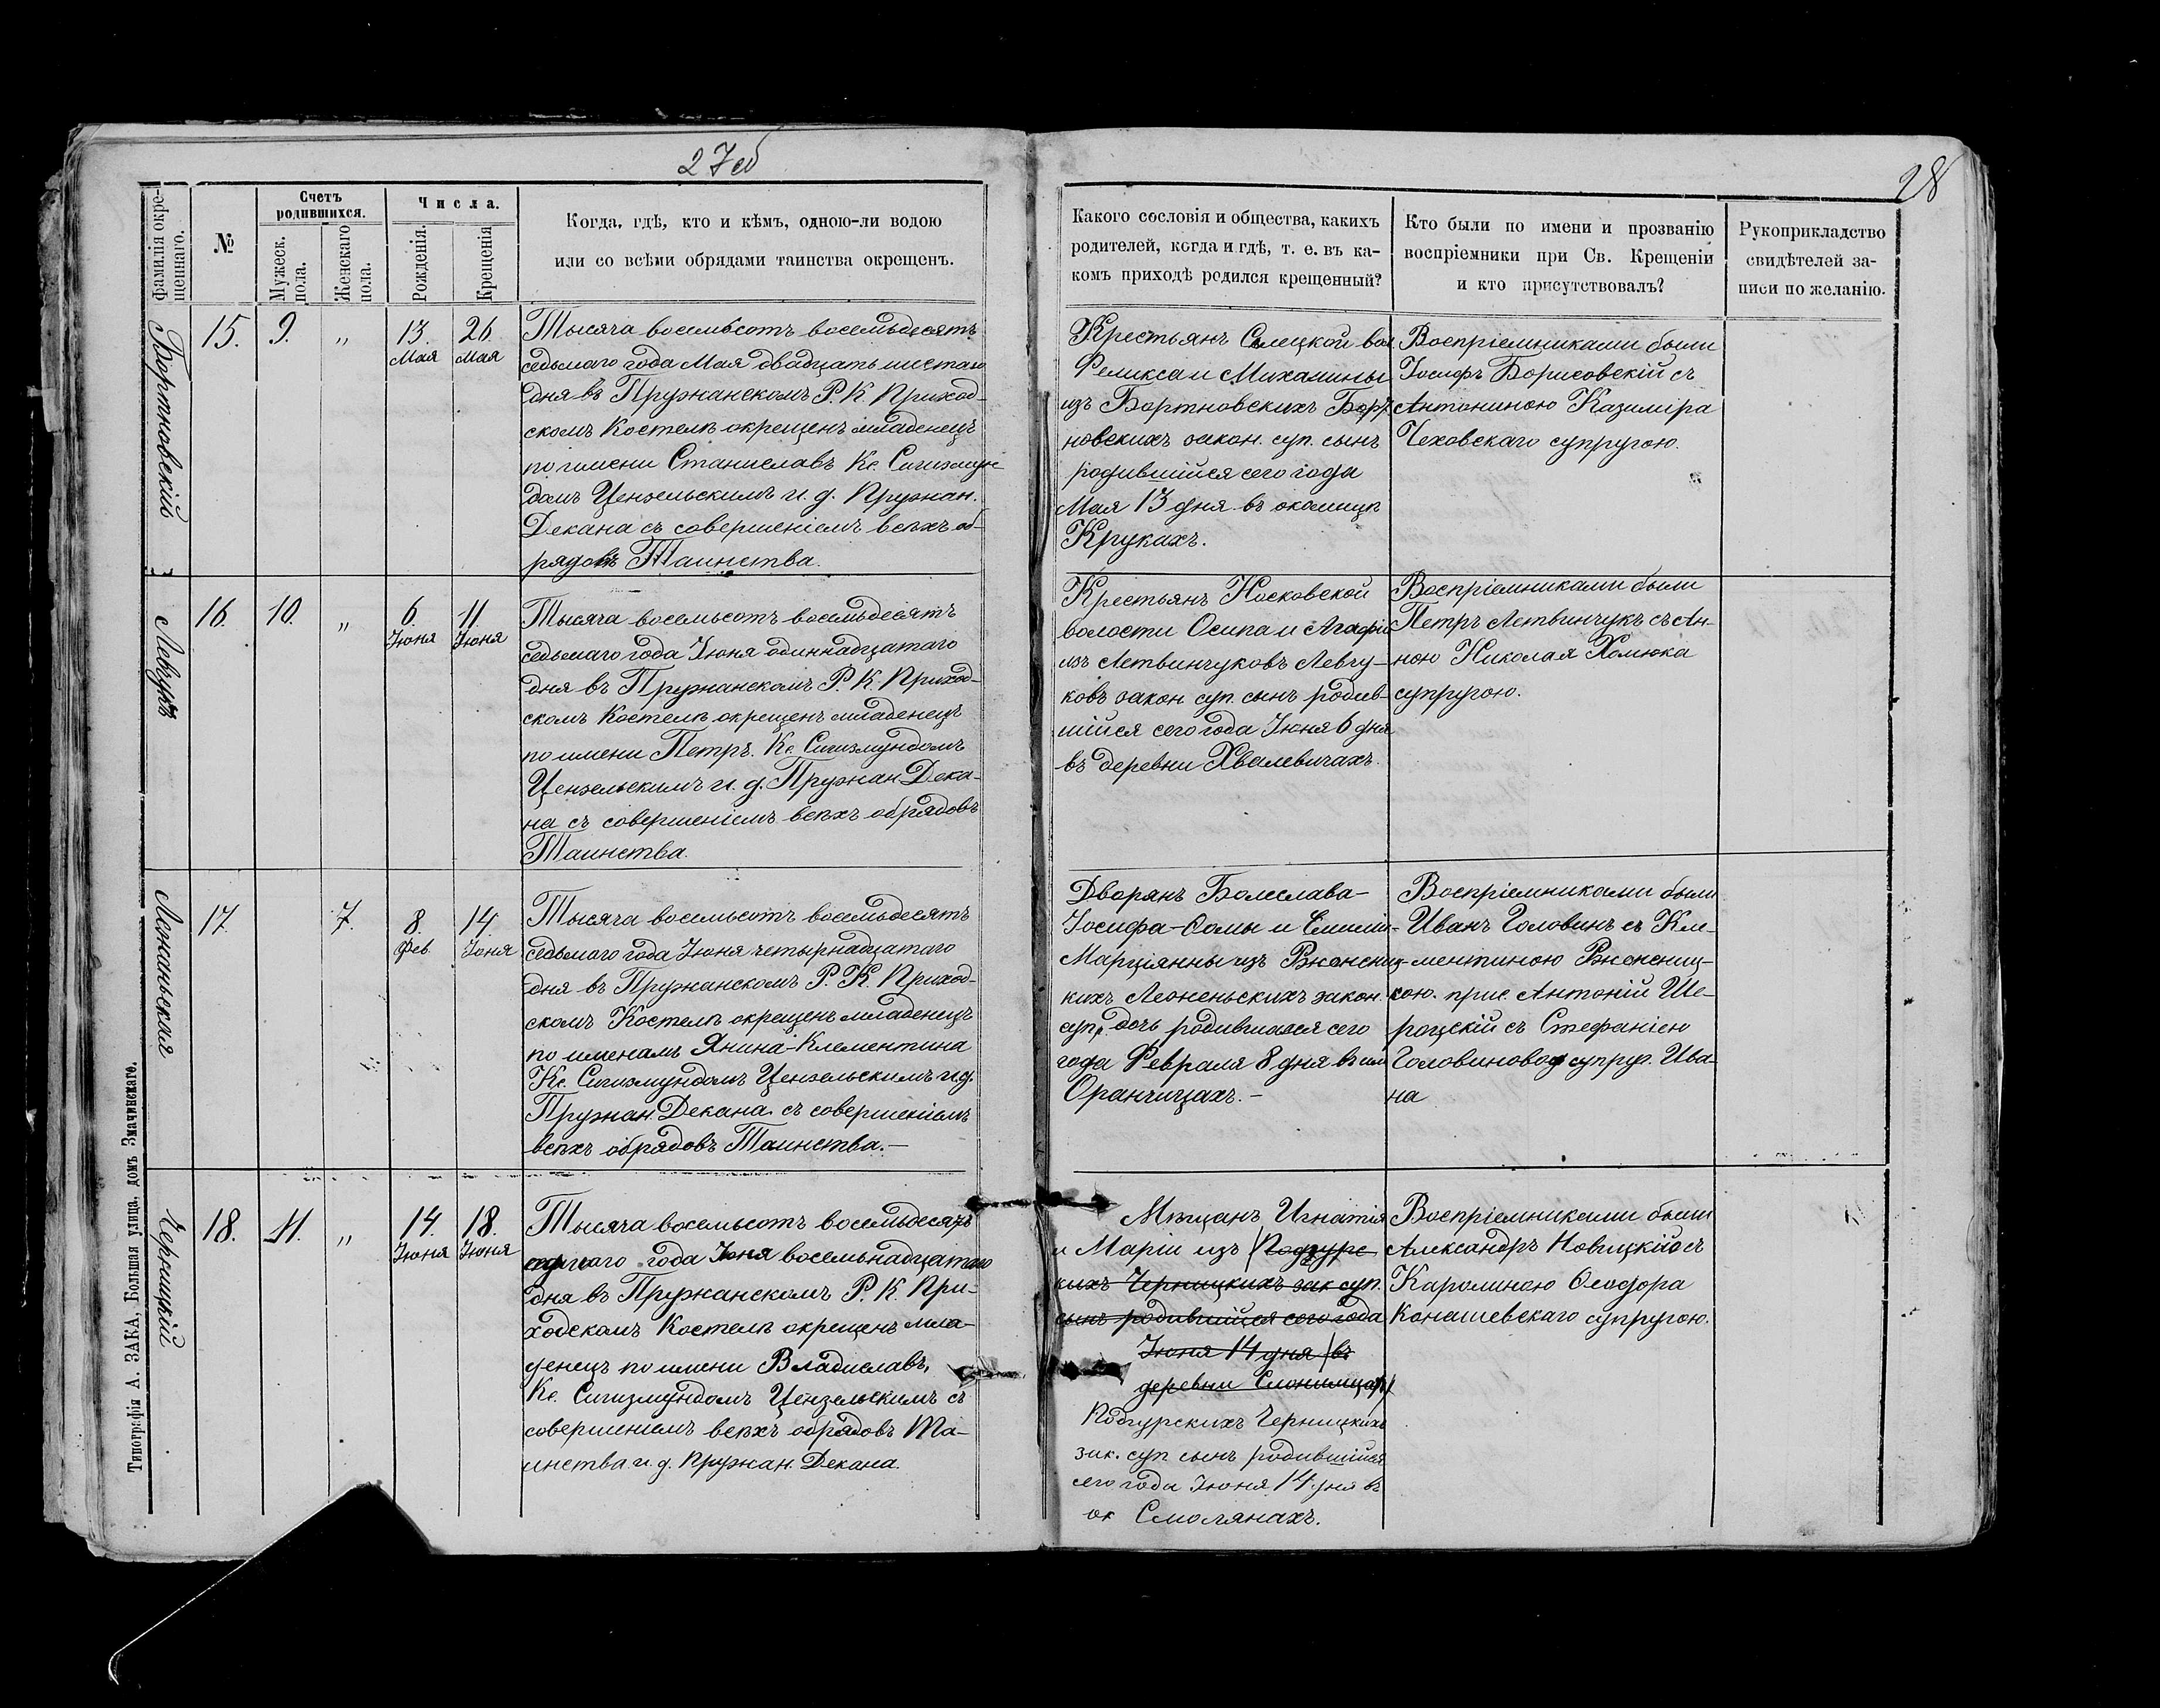 27об
28
фамилія окре-
щеннаго.
№
Счетъ
родившихся.
Мужеск.
пола.
Женскаго
пола.
Числа.
Рожденія.
Крещенія
Когда, гдѣ, кто и кѣмъ, одною-ли водою
или со всѣми обрядами таинства окрещенъ.
Какого сословія и общества, какихъ
родителей, когда и гдѣ, т. е. въ ка-
комъ приходѣ родился крещенный?
Кто были по имени и прозванію
воспріемники при Св. Крещеніи
и кто присутствовалъ?
Рукоприкладство
свидѣтелей за-
писи по желанію.
Бортновскій
15.
9.
„
13.
Мая
26.
Мая
Тысяча восемьсотъ восемьдесятъ
седьмаго года Мая двадцать шестаго
дня въ Пружанскомъ Р. К. Приход-
скомъ Костелѣ окрещенъ младенецъ
по имени Станиславъ Кс. Сигизмун-
домъ Цензельскимъ и. д. Пружан.
Декана съ совершеніемъ всѣхъ об-
рядовъ Таинства.
Крестьянъ Селецкой вол.
Феликса и Михалины
изъ Бортновскихъ Борт-
новскихъ закон. суп. сынъ
родившійся сего года
Мая 13 дня въ околицѣ
Крукахъ.
Воспріемниками были
Іосифъ Борисовскій съ
Антониною Казиміра
Чеховскаго супругою.
Левчукъ
16.
10.
„
6.
Іюня
11.
Іюня
Тысяча восемьсотъ восемьдесятъ
седьмаго года Іюня одиннадцатаго
дня въ Пружанскомъ Р. К. Приход-
скомъ Костелѣ окрещенъ младенецъ
по имени Петръ. Кс. Сигизмундомъ
Цензельскимъ и. д. Пружан. Дека-
на съ совершеніемъ всѣхъ обрядовъ
Таинства.
Крестьянъ Носковской
волости Осипа и Агафіи
изъ Летвинчуковъ Левчу-
ковъ закон. суп. сынъ родив-
шійся сего года Іюня 6 дня
въ деревни Хвалевичахъ.
Воспріемниками были
Петръ Летвинчукъ съ Ан-
ною Николая Хомюка
супругою.
Леженьская
17.
7.
8.
Фев.
14.
Іюня
Тысяча восемьсотъ восемьдесятъ
седьмаго года Іюня четырнадцатаго
дня въ Пружанскомъ Р. К. Приход-
скомъ Костелѣ окрещенъ младенецъ
по именамъ Янина-Клементина
Кс. Сигизмундомъ Цензельскимъ и.д.
Пружан. Декана. съ совершеніемъ
всѣхъ обрядовъ Таинства.—
Дворянъ Болеслава-
Іосифа-
Марціянны изъ
кихъ Леженьскихъ закон.
суп. дочь родившаяся сего
года Февраля 8 дня въ им.
Оранчицахъ.—
Воспріемниками были
Иванъ Головинъ съ Кле-
ментиною
кою. прис. Антоній Ше-
роцскій съ Стефаніею
Головиновой супруг. Ива-
на
Черницкій
18.
11.
„
14.
Іюня
18.
Іюня
Тысяча восемьсотъ восемьдесятъ
седьмаго года Іюня восемьнадцатаго
дня въ Пружанскомъ Р. К. При-
ходскомъ Костелѣ окрещенъ мла-
денецъ по имени Владиславъ,
Кс. Сигизмундомъ Цензельскимъ съ
совершеніемъ всѣхъ обрядовъ Та-
инства. и. д. Пружан. Декана.
Мѣщанъ Игнатія
и Маріи изъ (Подгурс
кихъ Черницкихъ зак суп.
сынъ родившійся сего года
Іюня 14 дня (въ
деревни
Подгурскихъ Черницкихъ
зак. суп сынъ родившійся
сего года Іюня 14 дня въ
ок Смолянахъ.
Воспріемниками были
Александръ Новицкій съ
Каролиною Ѳеодора
Конашевскаго супругою.
Типографія А. ЗАКА, Большая улица, домъ Значинскаго.